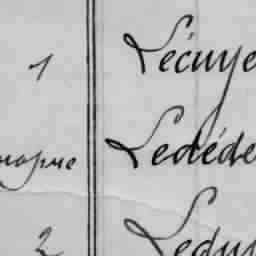 1 Lécuye
Ledéde
2 Ledu